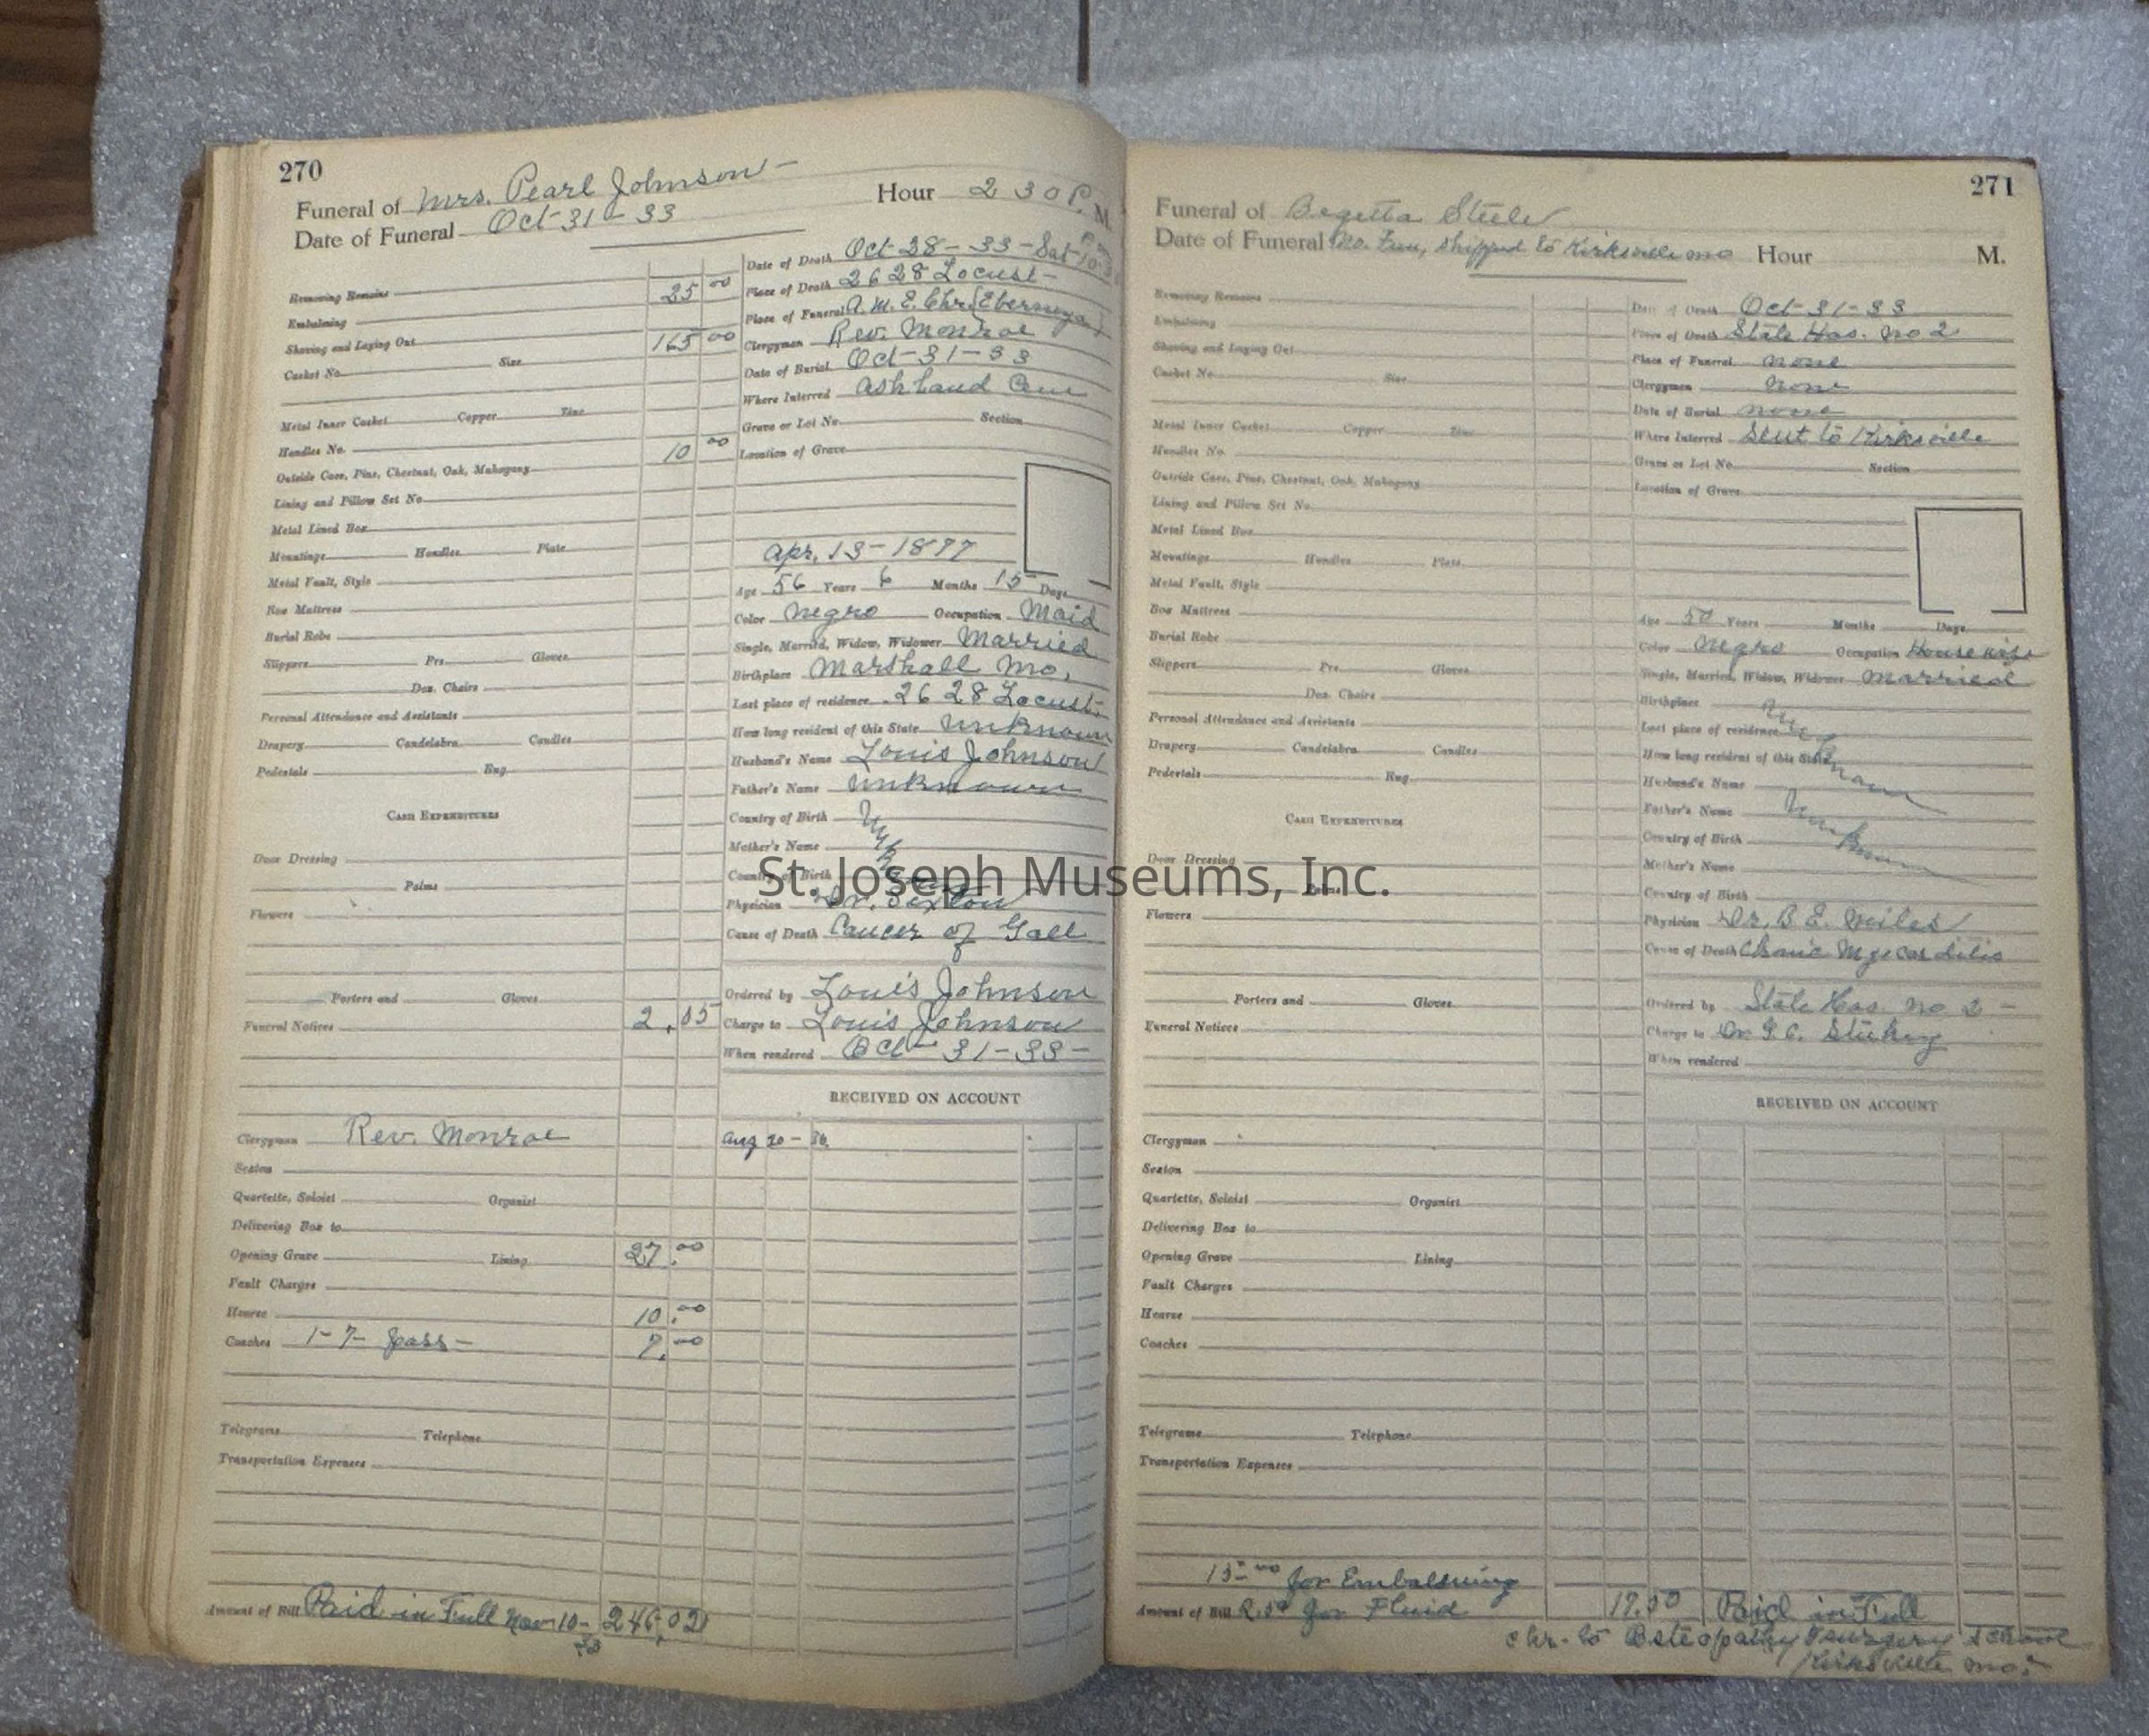 270
Funeral of Mrs. Pearl Johnson —
Hour 2 30 P. M.
Date of Funeral Oct-31-33
Date of Death Oct-28-33-Sat
Removing Remains
Place of Death 2628 Locust-
Embalming 25 00
Place of Funeral A.M.E. Chr.
Shaving and Laying Out
Clergyman Rev. Monroe
Casket No. Size 165 00
Date of Burial Oct-31-33
Where Interred Ashland Cem
Metal Inner Casket Copper Zinc
Grave or Lot No. Section
Handles No.
Location of Grave
Outside Case, Pine, Chestnut, Oak, Mahogany 10 00
Lining and Pillow Set No.
Metal Lined Box
Mountings Handles Plate
Apr. 13-1877
Metal Vault, Style
Age 56 Years 6 Months 15 Days
Box Mattress
Color Negro Occupation Maid
Burial Robe
Single, Married, Widow, Widower Married
Slippers Prs. Gloves
Birthplace Marshall Mo.
Doz. Chairs
Last place of residence 2628 Locust.
Personal Attendance and Assistants
How long resident of this State Unknown
Drapery Candelabra Candles
Husband's Name Louis Johnson
Pedestals Rug
Father's Name Unknown
CASH EXPENDITURES
Country of Birth
Mother's Name
Door Dressing
Country of Birth
Palms
Physician Dr. Sexton
Flowers
Cause of Death Cancer of Gall
Porters and Gloves
Ordered by Louis Johnson
Funeral Notices 2.05
Charge to Louis Johnson
When rendered Oct-31-33-
RECEIVED ON ACCOUNT
Clergyman Rev. Monroe
Aug 20-36
Sexton
Quartette, Soloist Organist
Delivering Box to
Opening Grave Lining 27.00
Vault Charges
Hearse 10.00
Coaches 1-7-pass- 7.00
Telegrams Telephone
Transportation Expenses
Amount of Bill Paid in Full Nov-10- 246.02
33
271
Funeral of Steele
Date of Funeral No. Fun, shipped to Kirksville Mo Hour M.
Removing Remains
Date of Death Oct-31-33
Embalming
Place of Death State Hos. No 2
Shaving and Laying Out
Place of Funeral none
Casket No. Size
Clergyman None
Date of Burial none
Metal Inner Casket Copper Zinc
Where Interred Sent to Kirksville
Handles No.
Grave or Lot No. Section
Outside Case, Pine, Chestnut, Oak, Mahogany
Location of Grave
Lining and Pillow Set No.
Metal Lined Box
Mountings Handles Plate
Metal Vault, Style
Box Mattress
Age 50 Years Months Days
Burial Robe
Color Negro Occupation Housewife
Slippers Prs. Gloves
Single, Married, Widow, Widower Married
Doz. Chairs
Birthplace Unknown
Personal Attendance and Assistants
Last place of residence
Drapery Candelabra Candles
How long resident of this State
Pedestals Rug
Husband's Name
Father's Name Unknown
CASH EXPENDITURES
Country of Birth
Door Dressing
Mother's Name
Palms
Country of Birth
Flowers
Physician Dr. B. E. Miles
Cause of Death Chronic Myocarditis
Porters and Gloves
Ordered by State Hos. No 2-
Funeral Notices
Charge to Dr. G. C.
When rendered
RECEIVED ON ACCOUNT
Clergyman
Sexton
Quartette, Soloist Organist
Delivering Box to
Opening Grave Lining
Vault Charges
Hearse
Coaches
Telegrams Telephone
Transportation Expenses
15.00 for Embalming
Amount of Bill 2.50 for Fluid 17.50 Paid in Full
chr. to Osteopathy Surgery School
Kirksville Mo.
St. Joseph Museums, Inc.